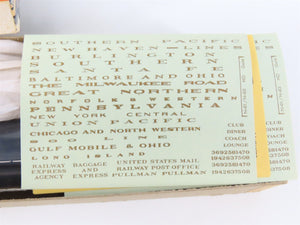 SOUTHERN PACIFIC
NEW HAVEN—LINES
BURLINGTON
SOUTHERN
SANTA FE
BALTIMORE AND OHIO
THE MILWAUKEE ROAD
GREAT NORTHERN
NORFOLK & WESTERN
PENNSYLVANIA
NEW YORK CENTRAL
UNION PACIFIC
CHICAGO AND NORTH WESTERN CLUB
SOO LINE DINER
GULF MOBILE & OHIO COACH
LONG ISLAND LOUNGE
RAILWAY BAGGAGE UNITED STATES MAIL 3692581470
EXPRESS AND RAILWAY POST OFFICE 1942637508
AGENCY EXPRESS PULLMAN PULLMAN 1942637508
CLUB
DINER
COACH
LOUNGE
3692581470
1942637508